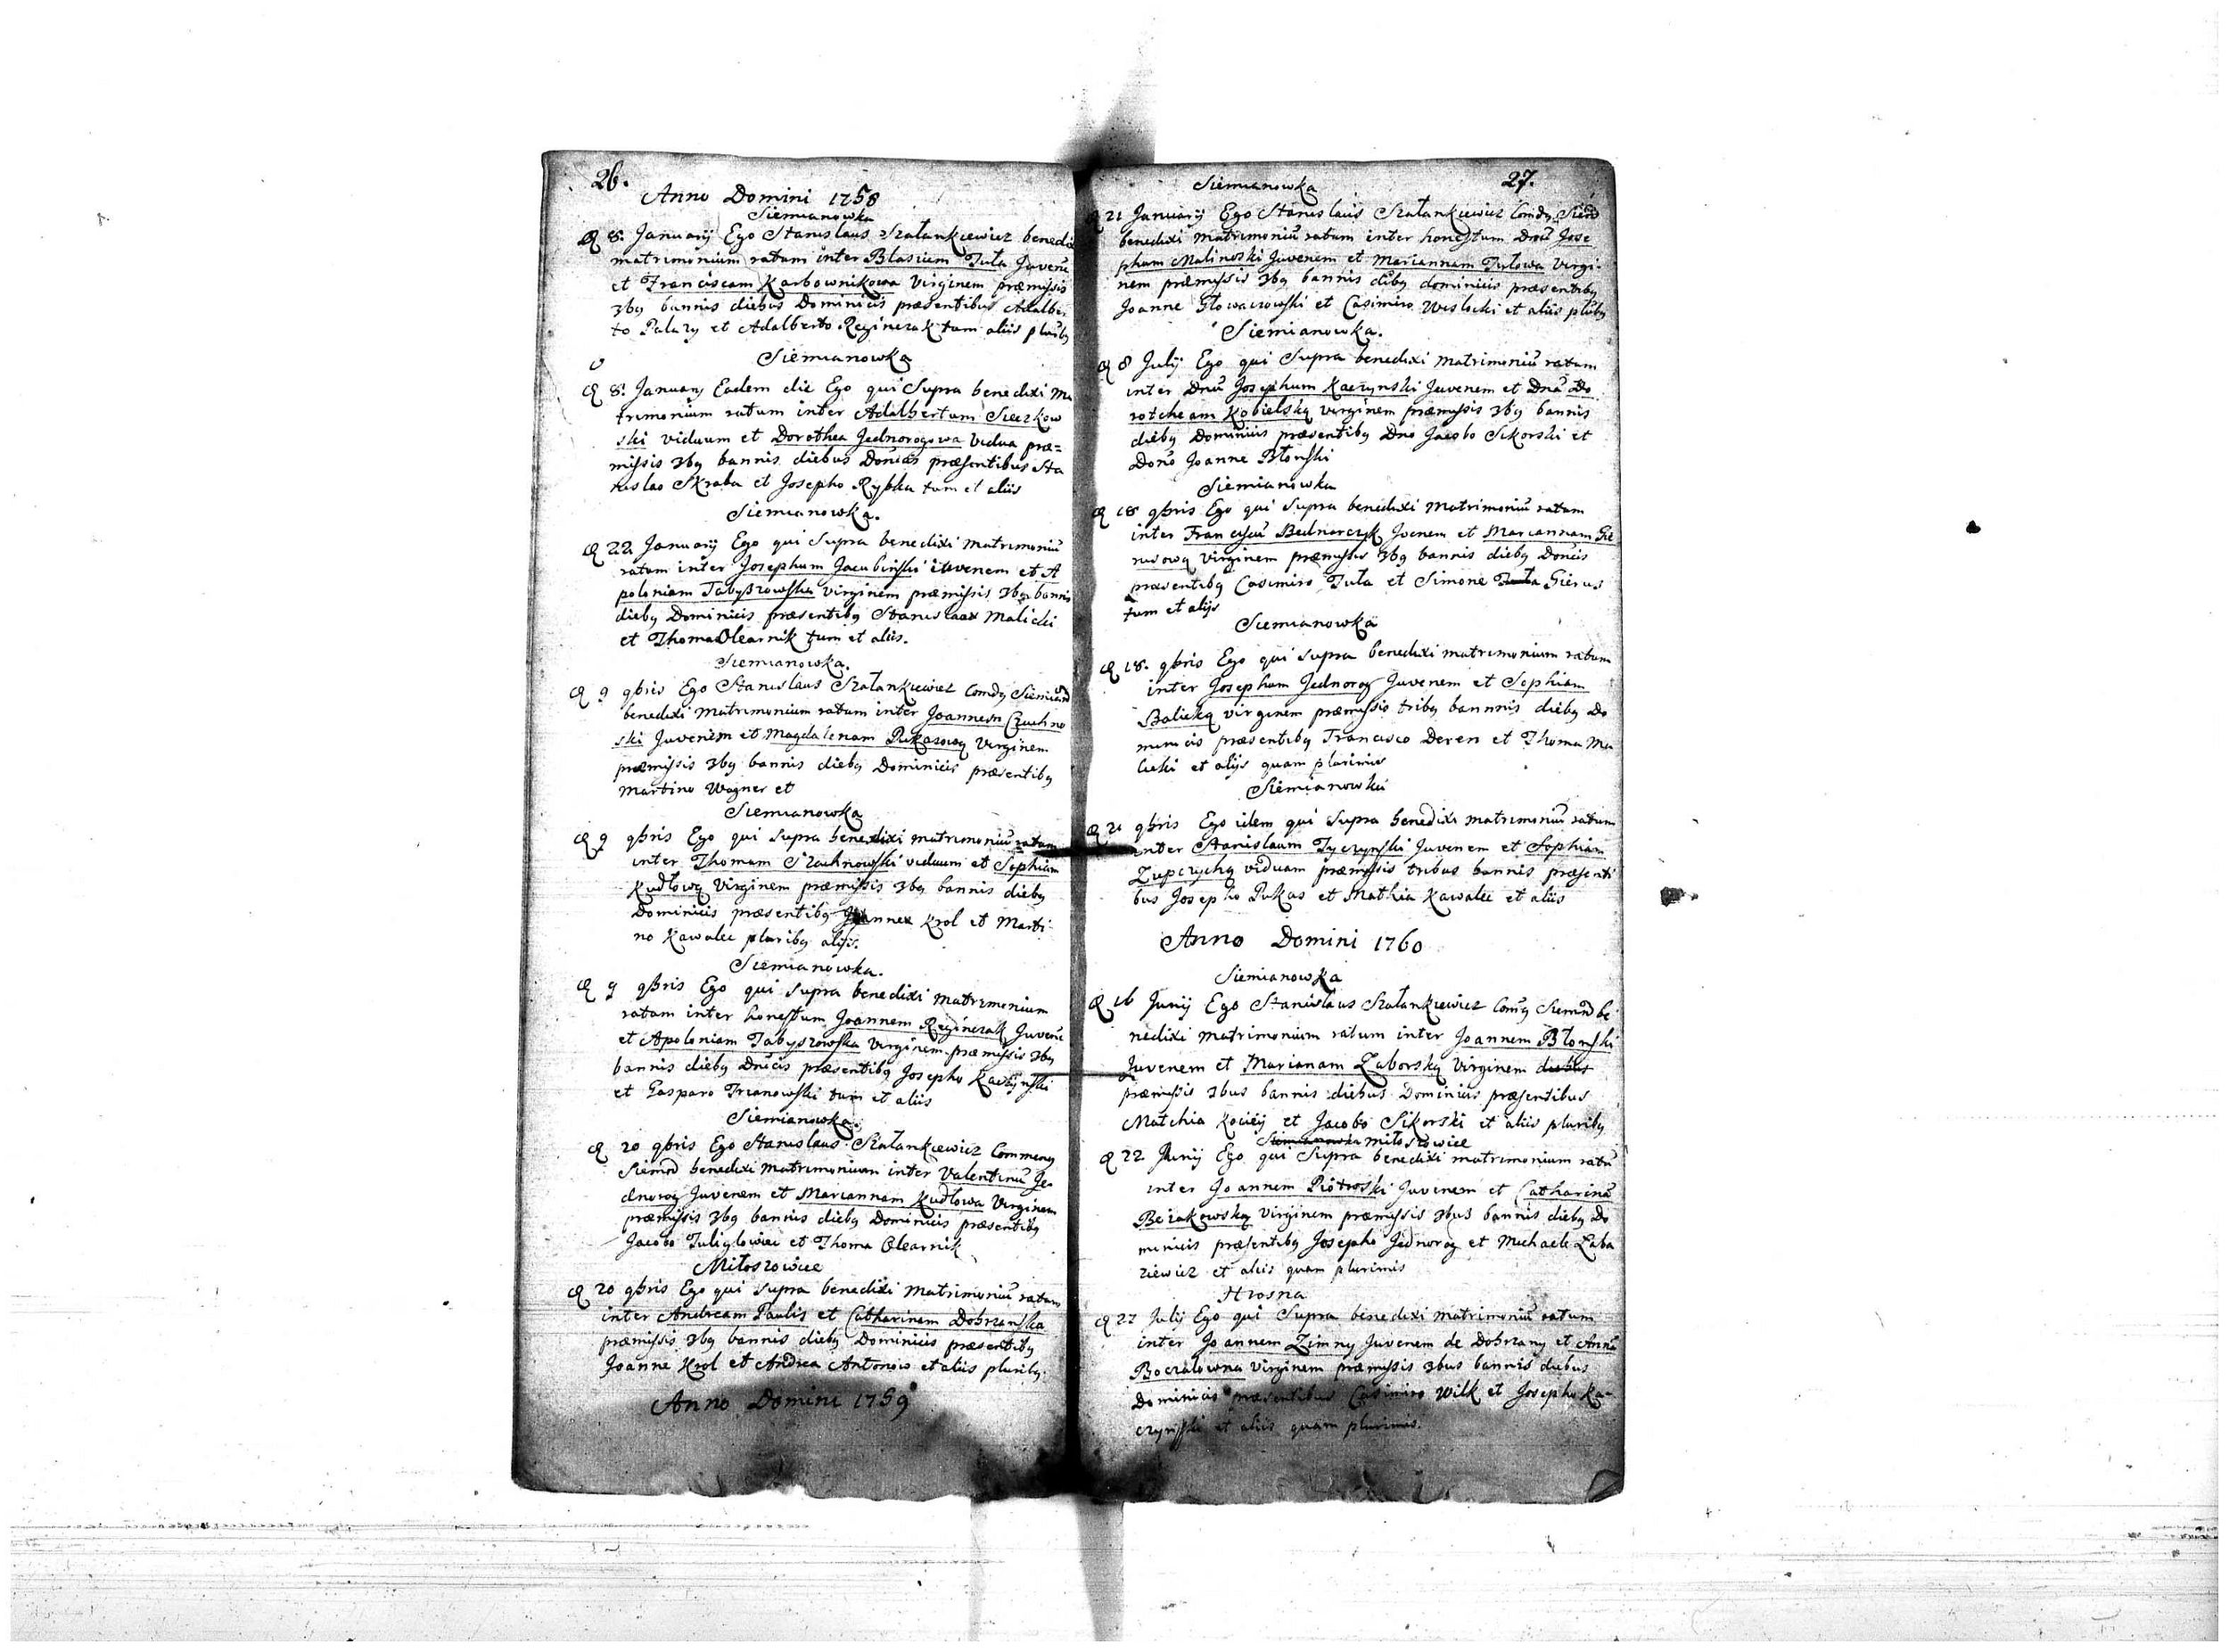 26.
Anno Domini 1758
Siemianowka
8. Januarij Ego Stanislaus Szałankiewicz benedi
matrimonium ratum inter Blasium Tuła Juvenē
et Franciscam Karbownikowa Virginem præmissis
3bq bannis diebus Dominicis præsentibus Adalber
to Palazy et Adalberto Reginczak tum aliis plurbq
Siemianowka
8. January Eadem die Ego qui Supra benedixi Ma
trimonium ratum inter Adalbertum Sieczkow
ski viduum et Dorothea Jednorogowa vidua præ=
missis 3bq bannis diebus Donicis præsentibus Sta
nislao Skraba et Josepho Rybka tum et aliis
Siemianowka.
22 Januarij Ego qui Supra benedixi Matrimoniū
ratum inter Josephum Jacubinski iuvenem et A
poloniam Tabyszowska virginem præmissis 3bq bannis
diebq Dominicis præsentibq Stanislao Malicki
et Thoma Olearnik tum et aliis.
Siemianowka.
9 9bris Ego Stanislaus Szałankiewicz Comdq Siemian
benedixi Matrimonium ratum inter Joannem Czuchno
ski Juvenem et Magdalenam Pukasową Virginem
præmissis 3bq bannis diebq Dominicis præsentibq
Martino Wagner et
Siemianowka
9 9bris Ego qui Supra benedixi matrimoniū ratum
inter Thomam Szuchnowski viduum et Sophiam
Kudłową Virginem præmissis 3bq bannis diebq
Dominicis præsentibq Joanne Krol et Marti
no Kawalec pluribq alijs.
Siemianowka.
9 9bris Ego qui Supra benedixi Matrimonium
ratum inter honestum Joannem Reginczak Juvenē
et Apoloniam Tabyszowska Virginem præmissis 3bq
bannis diebq Dnicis præsentibq Josepho Kaczynski
et Gasparo Trianowski tum et aliis
Siemianowka.
20 9bris Ego Stanislaus Szałankiewicz Commenq
Siemn benedixi Matrimonium inter Valentinū Je
dnorog Juvenem et Mariannam Kudłowa Virginem
præmissis 3bq bannis diebq Dominicis præsentibq
Jacobo Tuliglowicz et Thoma Olearnik
Miłoszowice
20 9bris Ego qui Supra benedixi Matrimoniū ratum
inter Andream Paulis et Catharinam Dobrzanska
præmissis 3bq bannis diebq Dominicis præsentibq
Joanne Krol et Andrea Antonow et aliis pluribq.
Anno Domini 1759
27.
Siemianowka
21 Januarij Ego Stanislaus Szałankiewicz Comdq Siem
benedixi Matrimoniū ratum inter honestum Dnū Jose
phum Malinoski Juvenem et Mariannam Tułowa Virgi-
nem præmissis 3bq bannis dibq dominicis præsentibq
Joanne Głowaczowski et Casimiro Wisłocki et aliis plūbq
Siemianowka.
8 Julij Ego qui Supra benedixi Matrimoniū ratum
inter Dnū Josephum Kaczynski Juvenem et Dnā Do
rotheam Kobielską virginem præmissis 3bq bannis
diebq Dominicis præsentibq Dno Jacobo Sikorski et
Dono Joanne Błonski
Siemianowka
18 9bris Ego qui Supra benedixi Matrimoniū ratum
inter Franciscū Bednarczyk Jvenem et Mariannam Gie
rusową Virginem præmissis 3bq bannis diebq Donicis
præsentibq Casimiro Tuła et Simone Tuła Gierus
tum et alijs
Siemianowka
18. 9bris Ego qui Supra benedixi matrimonium ratum
inter Josephum Jednorog Juvenem et Sophiam
Balicką virginem præmissis tribq bannnis diebq Do
minicis præsentibq Francisco Deren et Thoma Ma
licki et alijs quam plurimis
Siemianowka
21 9bris Ego idem qui Supra benedixi Matrimoniū ratum
inter Stanislaum Tyczynski Juvenem et Sophiam
Zupczychą viduam præmissis tribus bannis præsenti
bus Josepho Pukas et Mathia Kawalec et aliis
Anno Domini 1760
Siemianowka
16 Junij Ego Stanislaus Szałankiewicz Comq Siemn be
nedixi Matrimonium ratum inter Joannem Błonski
Juvenem et Marianam Zaborską Virginem diebus
præmissis 3bus bannis diebus Dominicis præsentibus
Matchia Kociey et Jacobo Sikorski et aliis pluribq
Siemianowka Miłoszowice
22 Junij Ego qui Supra benedixi matrimonium ratū
inter Joannem Piotroski Juvenem et Catharinā
Beżakowską Virginem præmissis 3bus bannis diebq Do
minicis præsentibq Josepho Jednorog et Michaele Laba
ziewicz et aliis quam plurimis
Hrosna
27 Julij Ego qui Supra benedixi Matrimoniū ratum
inter Joannem Zimny Juvenem de Dobrzany et Annā
Boczalowna Virginem præmissis 3bus bannis diebus
Dominicis præsentibus Casimiro Wilk et Josepho Ka-
czynski et aliis quam plurimis.